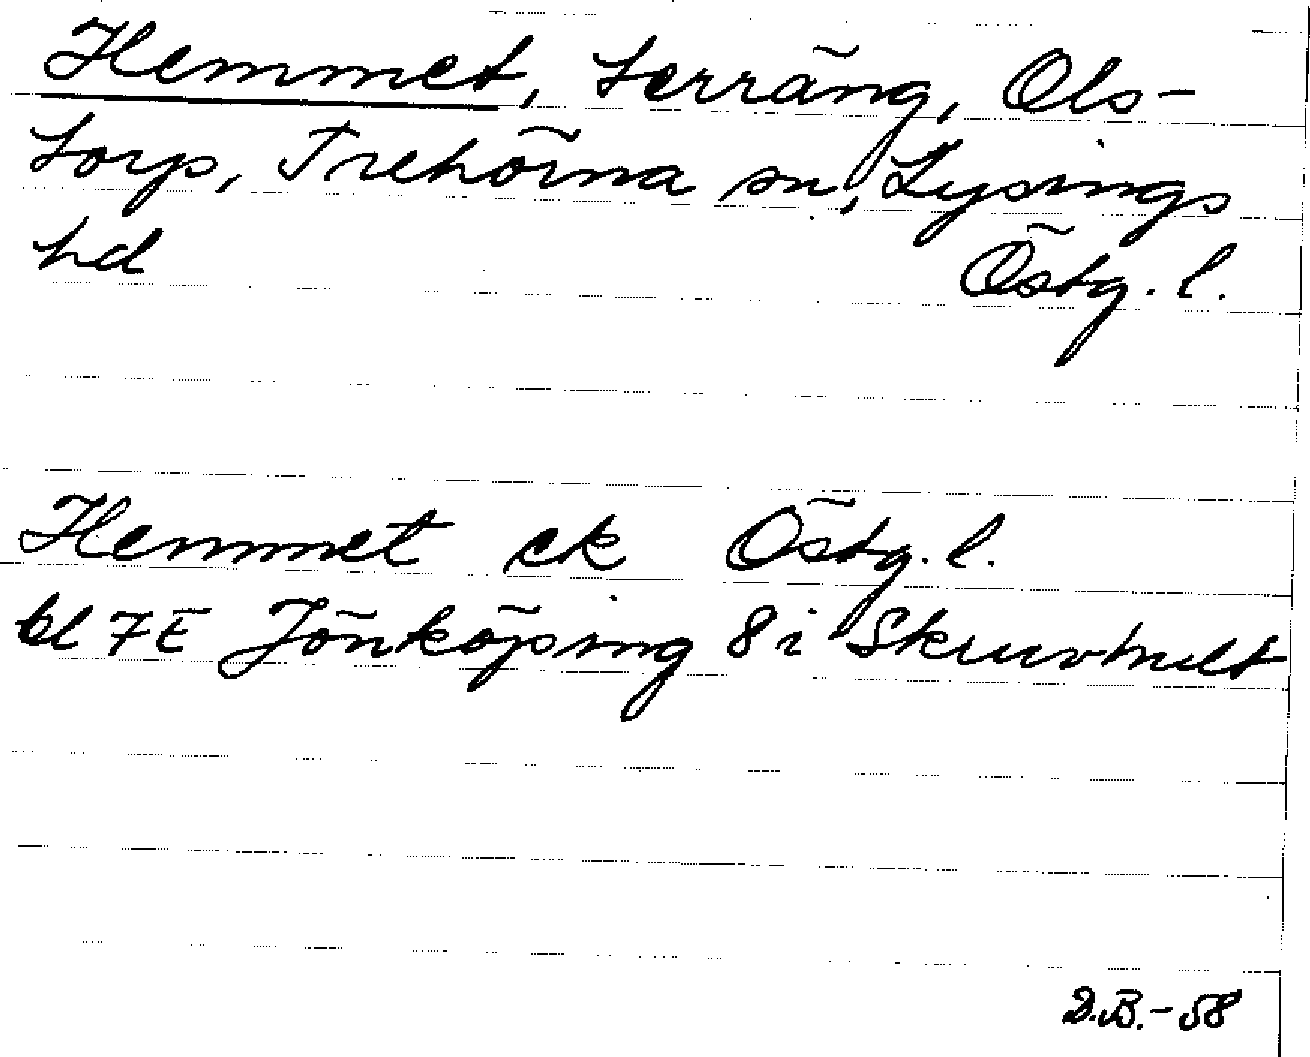 Hemmet, terräng, Ols-
torp, Trehörna sn, Lysings
hd Östg. l.
Hemmet ek Östg. l.
bl 7E Jönköping 8i Skruvhult
D.B.-58